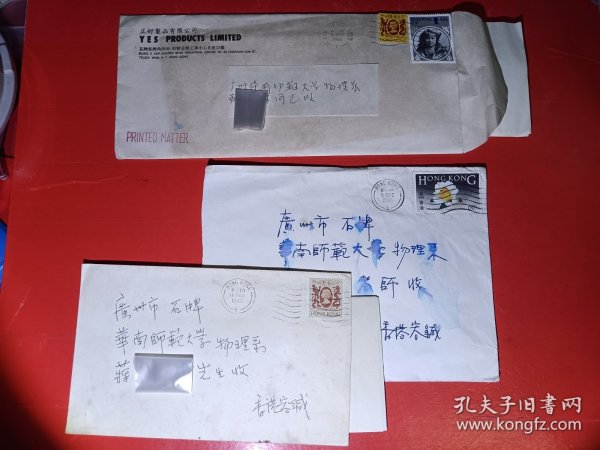 正好製品有限公司
YES PRODUCTS LIMITED
PRINTED MATTER
HONG KONG
广州华南师范大学物理系
同志收
HONG KONG
HONG KONG
廣州市 石牌
華南師範大學物理系
師收
香港容緘
HONG KONG
HONG KONG
廣州市 石牌
華南師範大學物理系
蔣 先生收
香港容緘
孔夫子旧书网
www.kongfz.com